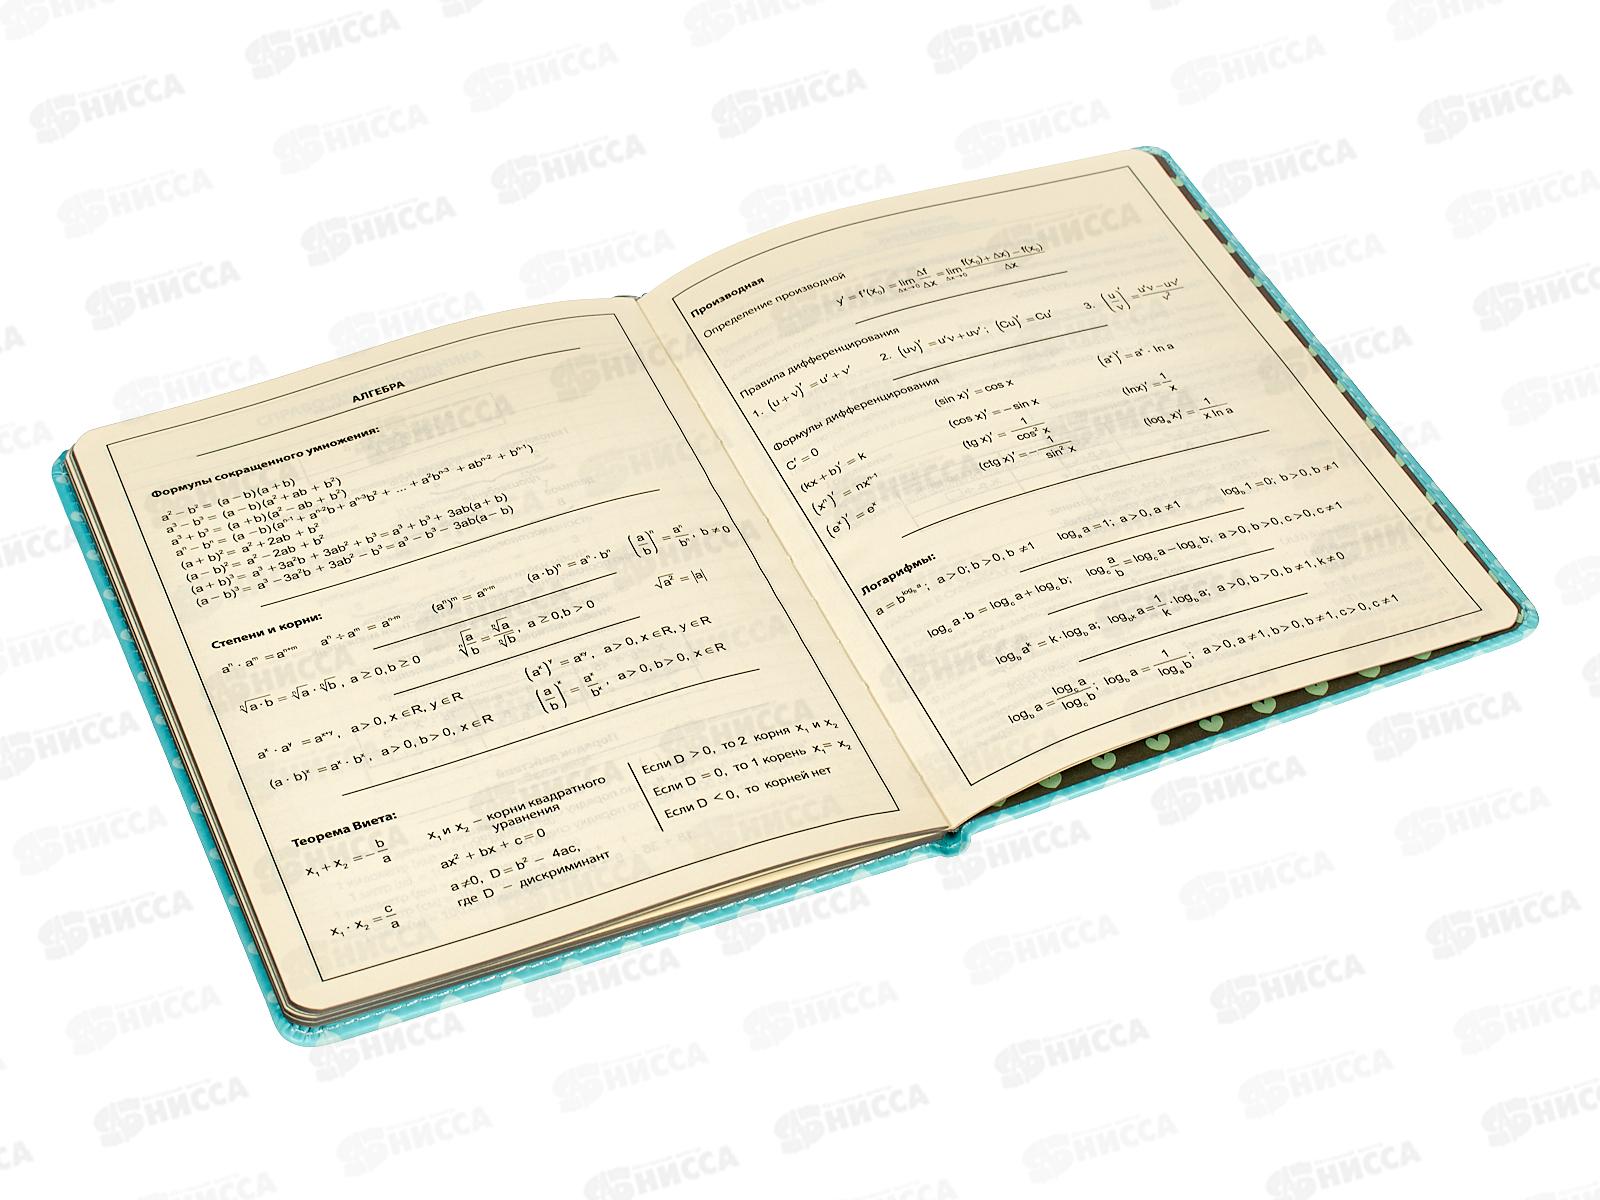 АЛГЕБРА
Формулы сокращенного умножения:
a² − b² = (a − b)(a + b)
a³ − b³ = (a − b)(a² + ab + b²)
a³ + b³ = (a + b)(a² − ab + b²)
aⁿ − bⁿ = (a − b)(aⁿ⁻¹ + aⁿ⁻²b + aⁿ⁻³b² + ... + a²bⁿ⁻³ + abⁿ⁻² + bⁿ⁻¹)
(a + b)² = a² + 2ab + b²
(a − b)² = a² − 2ab + b²
(a + b)³ = a³ + 3a²b + 3ab² + b³ = a³ + b³ + 3ab(a + b)
(a − b)³ = a³ − 3a²b + 3ab² − b³ = a³ − b³ − 3ab(a − b)
Степени и корни:
aⁿ · aᵐ = aⁿ⁺ᵐ aⁿ ÷ aᵐ = aⁿ⁻ᵐ (aⁿ)ᵐ = aⁿ·ᵐ (a · b)ⁿ = aⁿ · bⁿ (a/b)ⁿ = aⁿ/bⁿ · b ≠ 0
ⁿ√a · b = ⁿ√a · ⁿ√b, a ≥ 0, b ≥ 0 ⁿ√a/b = ⁿ√a/ⁿ√b, a ≥ 0, b > 0 √a² = |a|
aˣ · aʸ = aˣ⁺ʸ, a > 0, x ∈ R, y ∈ R (aˣ)ʸ = aˣʸ, a > 0, x ∈ R, y ∈ R
(a · b)ˣ = aˣ · bˣ, a > 0, b > 0, x ∈ R (a/b)ˣ = aˣ/bˣ, a > 0, b > 0, x ∈ R
Теорема Виета:
x₁ + x₂ = −b/a
x₁ · x₂ = c/a
x₁ и x₂ – корни квадратного
уравнения
ax² + bx + c = 0
a ≠ 0, D = b² − 4ac,
где D – дискриминант
Если D > 0, то 2 корня x₁ и x₂
Если D = 0, то 1 корень x₁ = x₂
Если D < 0, то корней нет
Производная
Определение производной
y' = f'(x₀) = lim Δx→0 Δf/Δx = lim Δx→0 f(x₀) + Δx) − f(x₀)/Δx
Правила дифференцирования
1. (u + v)' = u' + v' 2. (uv)' = u'v + uv'; (Cu)' = Cu' 3. (u/v)' = u'v − uv'/v²
Формулы дифференцирования
C' = 0 (sin x)' = cos x (aˣ)' = aˣ · ln a
(kx + b)' = k (cos x)' = − sin x (lnx)' = 1/x
(xⁿ)' = nxⁿ⁻¹ (tg x)' = 1/cos² x (logₐx)' = 1/x ln a
(eˣ)' = eˣ (ctg x)' = − 1/sin² x
Логарифмы:
a = b^log_b a; a > 0; b > 0, b ≠ 1 log_a a = 1; a > 0, a ≠ 1 log_b 1 = 0; b > 0, b ≠ 1
log_c a · b = log_c a + log_c b; log_c a/b = log_c a − log_c b; a > 0, b > 0, c > 0, c ≠ 1
log_b aᵏ = k · log_b a; log_bᵏ a = 1/k · log_b a; a > 0, b > 0, b ≠ 1, k ≠ 0
log_b a = log_c a/log_c b; log_b a = 1/log_a b; a > 0, a ≠ 1, b > 0, b ≠ 1, c > 0, c ≠ 1
НИССА